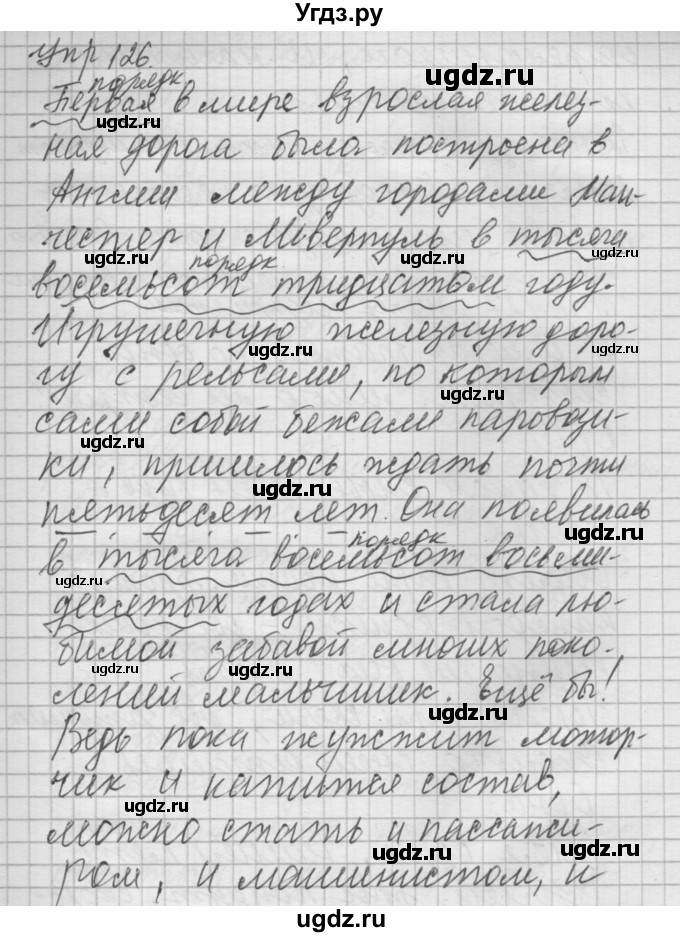 Угдз.ру
Упр 126.
порядк.
Первая в мире взрослая желез-
ная дорога была построена в
Англии между городами Ман-
честер и Ливерпуль в тысяча
порядк.
восемьсот тридцатом году.
Игрушечную железную доро-
гу с рельсами, по которым
сами собой бежали паровози-
ки, пришлось ждать почти
пятьдесят лет. Она появилась
порядк
в тысяча восемьсот восьми-
десятых годах и стала лю-
бимой забавой многих поко-
лений мальчишек. Ещё бы!
Ведь пока жужжит мотор-
чик и катится состав,
можно стать и пассажи-
ром, и машинистом, и
ugdz.ru